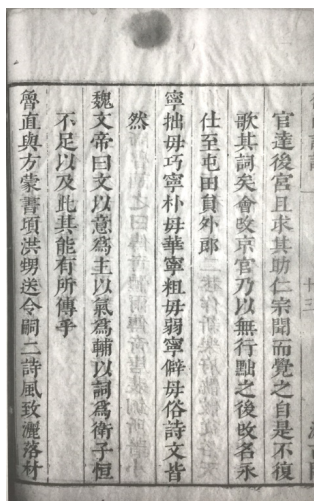 官達後宮且求其助仁宗聞而覺之自是不復
歌其詞矣會改京官乃以無行黜之後改名永
仕至屯田員外郎
寧拙毋巧寧朴毋華寧粗毋弱寧僻毋俗詩文皆
然
魏文帝曰文以意為主以氣為輔以詞為衛子恒
不足以及此其能有所傳乎
魯直與方蒙書頃洪甥送令嗣二詩風致灑落材